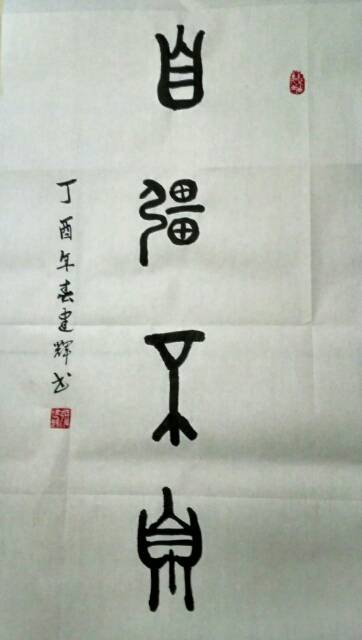 自彊不息
丁酉年春建辉书